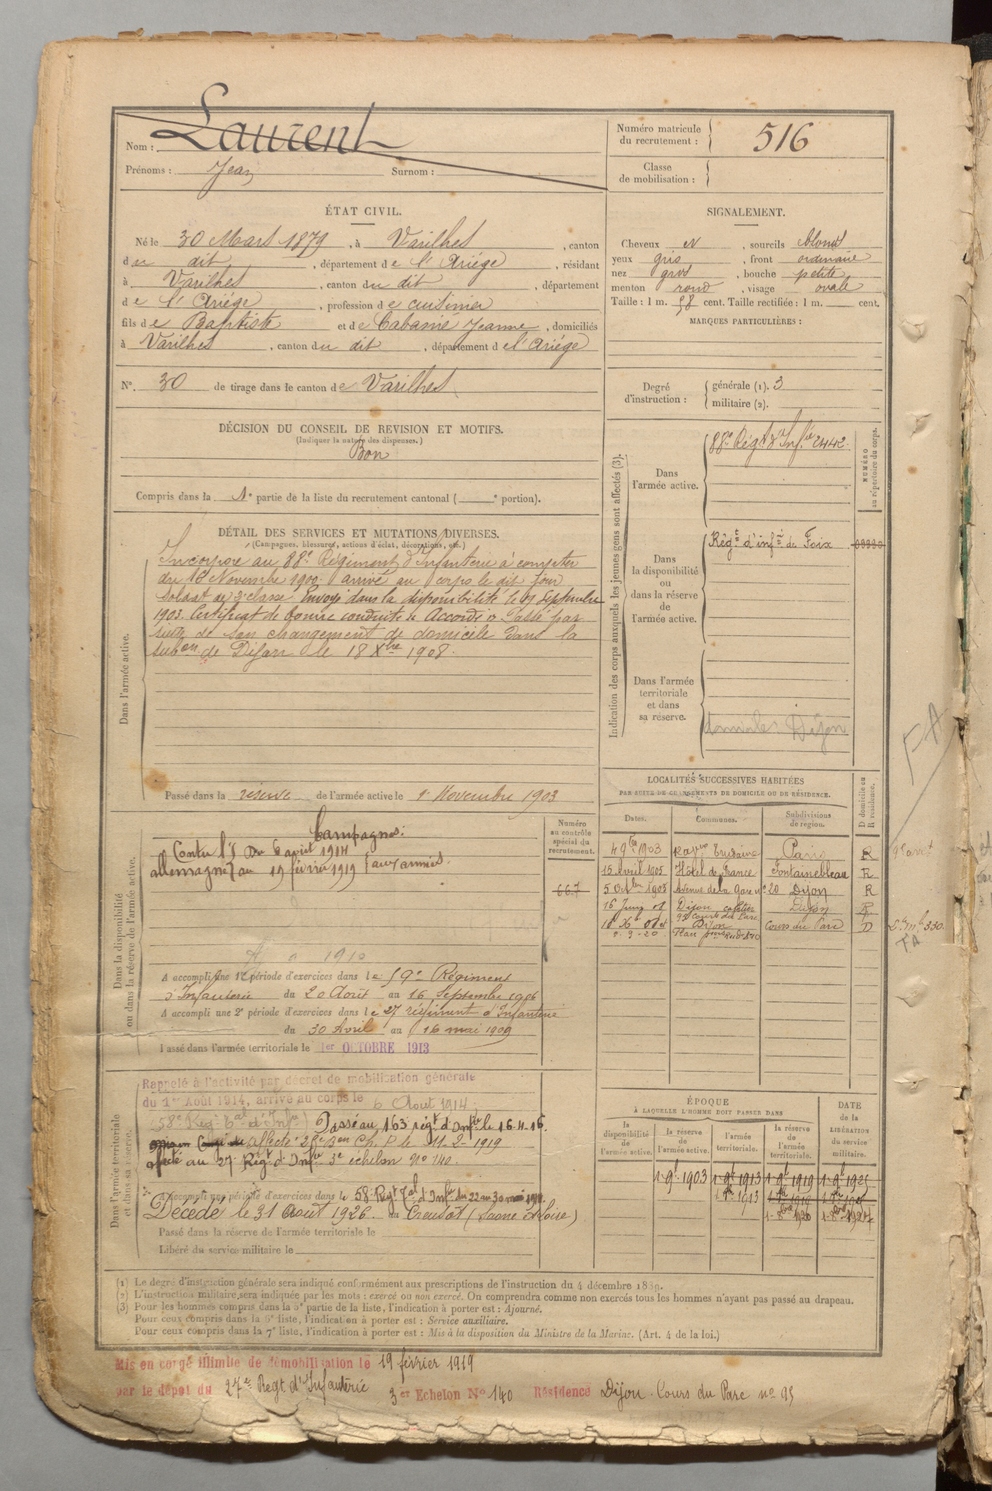 Nom : Laurent
Prénoms : Jean Surnom :
Numéro matricule du recrutement : 516
Classe de mobilisation :
ÉTAT CIVIL.
Né le 30 Mars 1879, à Varilhes, canton
du dit, département de l'Ariège, résidant
à Varilhes, canton du dit, département
de l'Ariège, profession de cuisinier
fils de Baptiste et de Cabanié Jeanne, domiciliés
à Varilhes, canton du dit, département de l'Ariège
N° 30 de tirage dans le canton de Varilhes
SIGNALEMENT.
Cheveux , sourcils blonds
yeux gris , front ordinaire
nez gros , bouche petite
menton rond , visage ovale
Taille : 1 m. 58 cent. Taille rectifiée : 1 m. cent.
MARQUES PARTICULIÈRES :
Degré d'instruction : générale (1). 3
militaire (2).
DÉCISION DU CONSEIL DE REVISION ET MOTIFS.
(Indiquer la nature des dispenses.)
Bon
Compris dans la 1e partie de la liste du recrutement cantonal ( e portion).
DÉTAIL DES SERVICES ET MUTATIONS DIVERSES.
(Campagnes, blessures, actions d'éclat, décorations, etc.)
Dans l'armée active.
Incorporé au 88e Régiment d'Infanterie à compter
du Novembre 1900 arrivé au corps le dit jour
soldat de 2e classe Envoyé dans la disponibilité le Septembre
1903. Certificat de bonne conduite Accordé Passé par
suite de son changement de domicile dans la
subon de Dijon le 18 Xbre 1908.
Passé dans la réserve de l'armée active le 1 Novembre 1903
Indication des corps auxquels les jeunes gens sont affectés (3).
NUMÉRO au répertoire du corps.
Dans l'armée active.
88e Régt d'Infie 2442
Dans la disponibilité ou dans la réserve de l'armée active.
Régt d'infie de Foix
Dans l'armée territoriale et dans sa réserve.
Dijon
LOCALITÉS SUCCESSIVES HABITÉES
PAR SUITE DE CHANGEMENTS DE DOMICILE OU DE RÉSIDENCE.
Dates. Communes. Subdivisions de région. D domicile ou R résidence.
1903 Paris R
15 Avril 1905 Hôtel de France Fontainebleau R
5 1905 Avenue de la Gare n° 20 Dijon R
16 Juin Dijon Dijon R
95 Cours du Parc Dijon Cours du Parc D
FA
Dans la disponibilité ou dans la réserve de l'armée active.
Numéro au contrôle spécial du recrutement.
667
Campagnes :
Contre l' Du 6 août 1914
allemagne au 19 février 1919 aux armées.
1910
A accompli une 1e période d'exercices dans le 59e Régiment
d'Infanterie du 20 Août au 16 Septembre 1906
A accompli une 2e période d'exercices dans le 27 régiment d'Infanterie
du 30 Avril au 16 mai 1909
Passé dans l'armée territoriale le 1er OCTOBRE 1913
Dans l'armée territoriale et dans sa réserve.
Rappelé à l'activité par décret de mobilisation générale
du 1er Août 1914, arrivé au corps le 6 Août 1914.
58e Rég d'Infie Passé au 163 régt d'Infie le 16.11.16.
affecté le 11-2-1919
affecté au 27 Régt d'Infie 3e echelon no 140.
Accompli une période d'exercices dans le 58 Régt d'Infie du 22 au 30 mai
Décédé le 31 Août 1926 au Creusot (Saone et Loire)
Passé dans la réserve de l'armée territoriale le
Libéré du service militaire le
ÉPOQUE
À LAQUELLE L'HOMME DOIT PASSER DANS
DATE DE LA LIBÉRATION du service militaire.
la disponibilité de l'armée active. la réserve de l'armée active. l'armée territoriale. la réserve de l'armée territoriale.
1-9e 1903 1-9e 1913 1-9e 1919 1-9e 1925
(1) Le degré d'instruction générale sera indiqué conformément aux prescriptions de l'instruction du 4 décembre 1889.
(2) L'instruction militaire sera indiquée par les mots : exercé ou non exercé. On comprendra comme non exercés tous les hommes n'ayant pas passé au drapeau.
(3) Pour les hommes compris dans la 5e partie de la liste, l'indication à porter est : Ajourné.
Pour ceux compris dans la 6e liste, l'indication à porter est : Service auxiliaire.
Pour ceux compris dans la 7e liste, l'indication à porter est : Mis à la disposition du Ministre de la Marine. (Art. 4 de la loi.)
Mis en congé illimité de démobilisation le 19 février 1919
par le dépôt du 27e Régt d'Infanterie 3er Echelon No 140 Résidence Dijon. Cours du Parc no 95